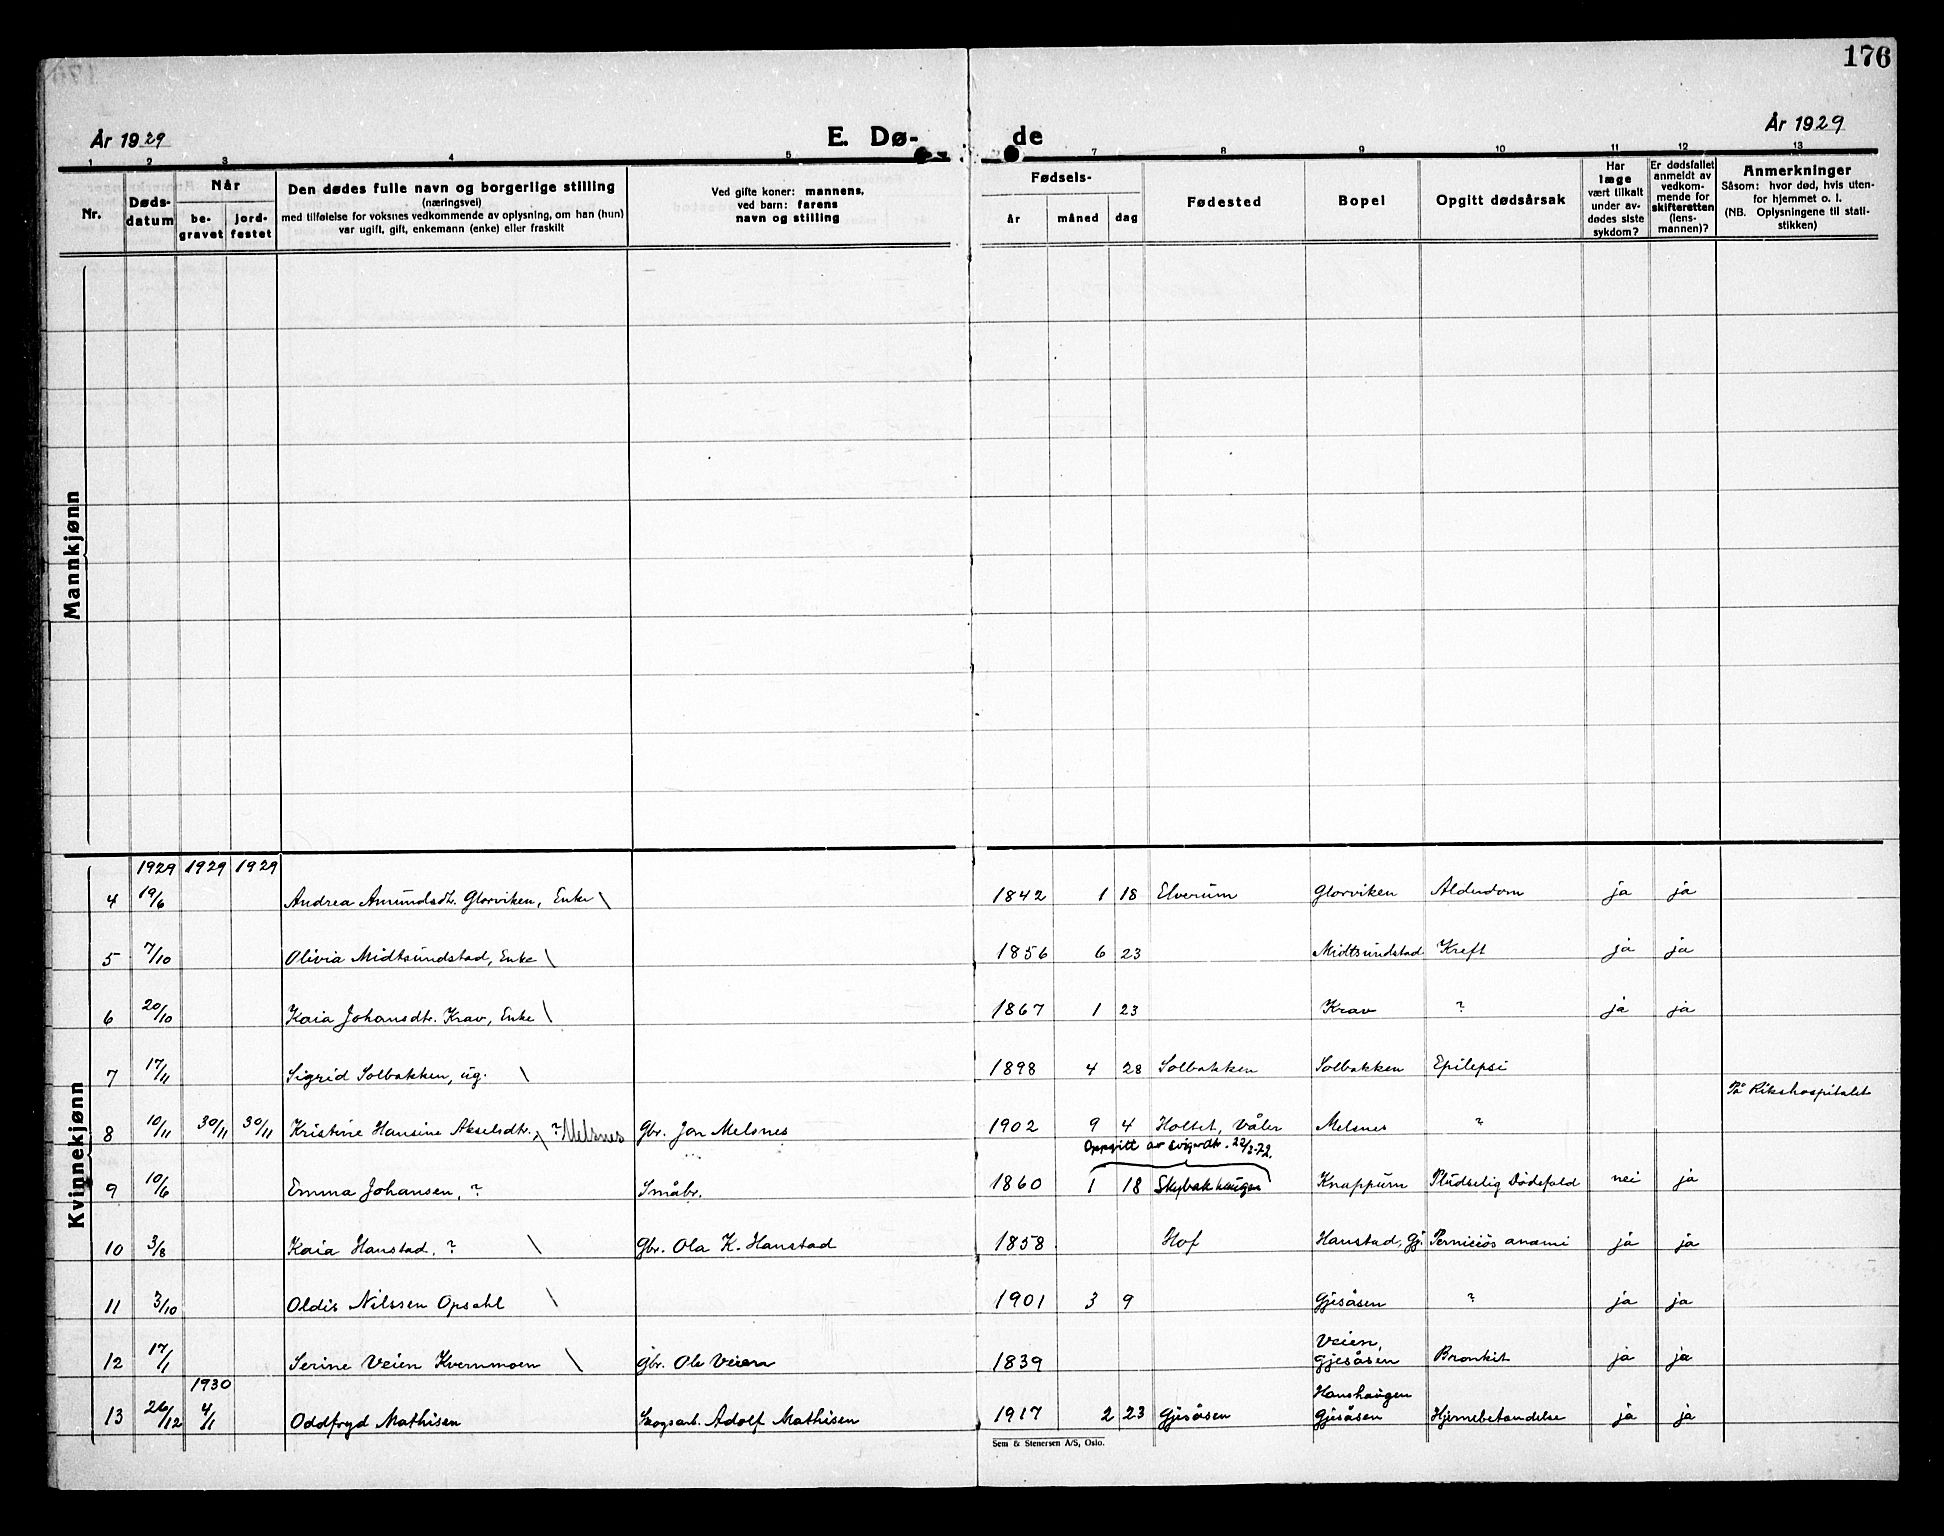 176
År 1929
E. Dø-
de
År 1929
1 2 3 4 5 7 8 9 10 11 12 13
Nr.
Døds-
datum
Når
be-
gravet
jord-
festet
Den dødes fulle navn og borgerlige stilling
(næringsvei)
med tilføielse for voksnes vedkommende av oplysning, om han (hun)
var ugift, gift, enkemann (enke) eller fraskilt
Ved gifte koner: mannens,
ved barn: farens
navn og stilling
Fødsels-
år
måned
dag
Fødested
Bopel
Opgitt dødsårsak
Har
læge
vært tilkalt
under av-
dødes siste
sykdom?
Er dødsfallet
anmeldt av
vedkom-
mende for
skifteretten
(lens-
mannen)?
Anmerkninger
Såsom: hvor død, hvis uten-
for hjemmet o. l.
(NB. Oplysningene til stati-
stikken)
Mannkjønn
Kvinnekjønn
1929 1929 1929
4 19/6 Andrea Amundsdt. Glorviken, Enke \ 1842 1 18 Elverum Glorviken Alderdom ja ja
5 7/10 Olivia Midtsundstad, Enke \ 1856 6 23 Midtsundstad Kreft ja ja
6 20/10 Kaia Johansdtr. Krav, Enke \ 1867 1 23 Krav ? ja ja
7 17/11 Sigrid Solbakken, ug. \ 1898 4 28 Solbakken Solbakken Epilepsi
På Rikshospitalet
8 10/11 30/11 30/11 Kristine Hansine Akselsdtr. \ ? Melsnes Gbr. Jon Melsnes 1902 9 4 Holtet, Våler Melsnes "
Oppgitt av svigerdtr. 22/3-72.
9 10/6 Emma Johansen, ? Småbr. 1860 1 18 Skybakhaugen Knappum Pludselig Dødsfald nei ja
10 3/8 Kaia Hanstad, ? \ Gbr. Ola K. Hanstad 1858 Hof Hanstad, Gj. Perniciøs anæmi ja ja
11 3/10 Oldis Nilssen Opsahl \ 1901 3 9 Gjesåsen ? ja ja
Veien,
12 17/1 Serine Veien Kvernmoen \ Gbr. Ole Veien 1839 Gjesåsen Bronkit ja ja
1930
Hanshaugen
13 26/12 4/1 Oddfryd Mathisen Skogsarb. Adolf Mathisen 1917 2 23 Gjesåsen Gjesåsen Hjernebetændelse ja ja
Sem & Stenersen A/S, Oslo.